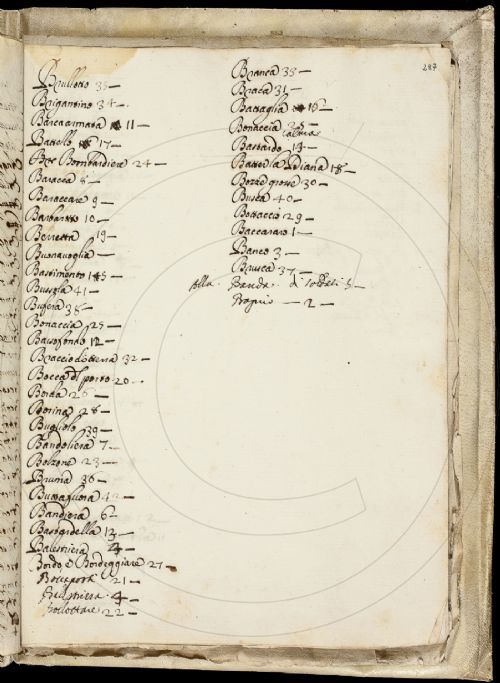 287
Brullotto 35 —
Brigantino 34 —
Barca armata 11 —
Battello 17 —
Bombardiera 24 —
Baracca 8 —
Baraccare 9 —
Barbarotto 10 —
Berretta 19 —
Buonavoglia —
Bastimento 5 —
Bussola 41 —
Bufera 38 —
Bonaccia 25 —
Bassofondo 12 —
Braccio di terra 32 —
Bocca del porto 20 —
Borda 26 —
Borina 28 —
Bugliolo 39 —
Bandoliera 7 —
Bolzone 23 —
Bruma 36 —
Buttafuora 42 —
Bandiera 6 —
Bastardella 13 —
Balestriera 4 —
Bordo e Bordeggiare 27 —
Boccaporta 21 —
4 —
22 —
Branca 33 —
Braca 31 —
Battaglia 16 —
Bonaccia 25 —
calma
Bastardo 14 —
Batter la Diana 18 —
Bozze grosse 30 —
Busca 40 —
Bottaccio 29 —
Baccararo 1 —
Banco 3 —
Brusca 37 —
alla Banda di 5 —
Proprio — 2 —